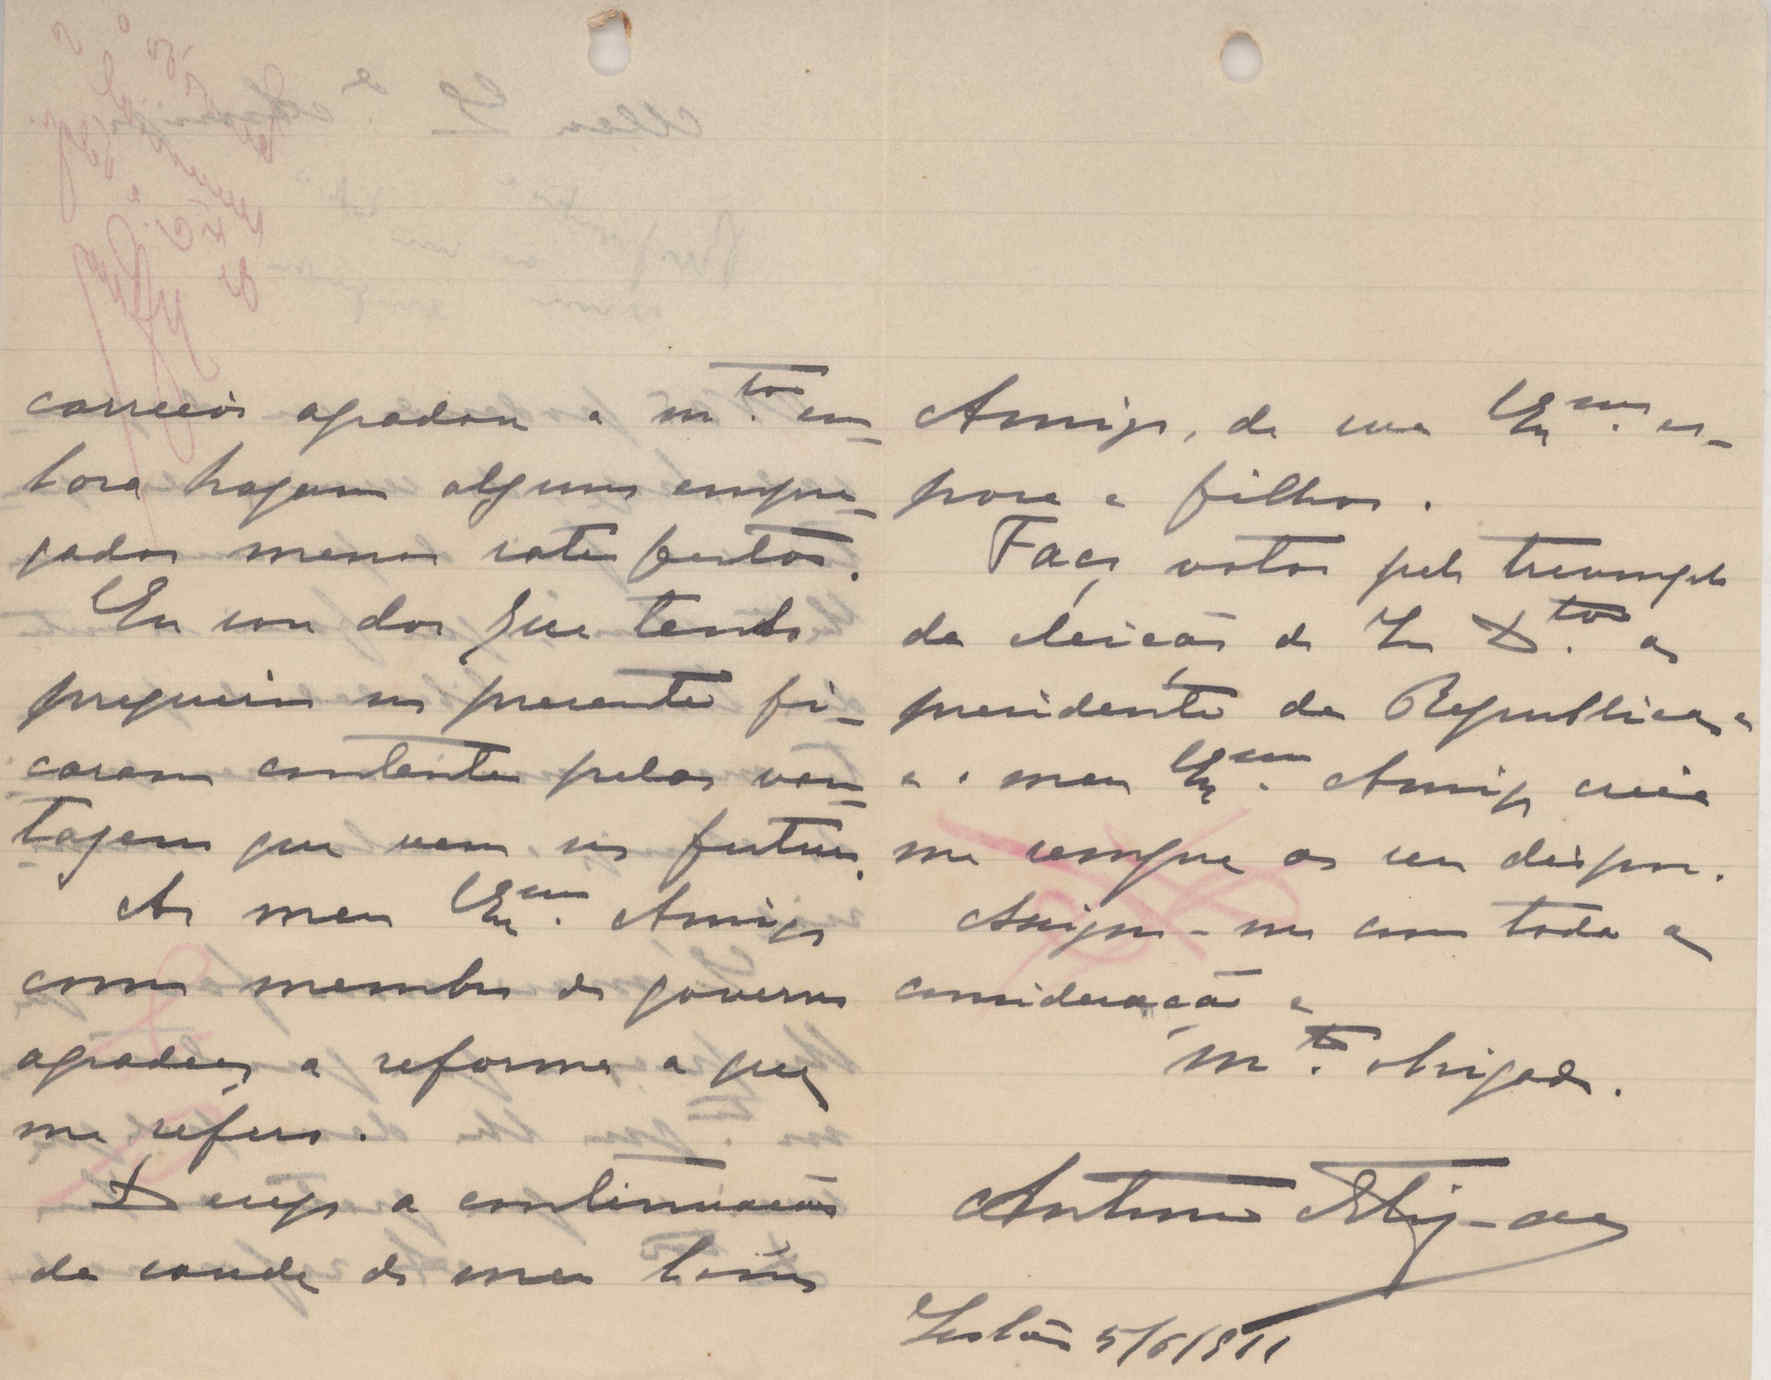 correios agradou a m.tos em-
bora hajam alguns empre-
gados menos satisfeitos.
Eu sou dos que tendo
prejuizo no presente fi-
caram contentes pelas van-
tagens que vem no futuro.
Ao meu Ex.mo Amigo
como membro do governo
agradeço a reforma a que
me refiro.
Desejo a continuação
da saude do meu bom
Amigo, de sua Ex.ma es-
posa e filhos.
Faço votos pelo triumpho
da eleição do Sr D.tor a
presidente da Republica e
e o meu Ex.mo Amigo creia
me sempre ao seu dispor.
Assigno-me com toda a
consideração e
m.to obrigado.
Antonio
Lisbôa 5/6/911